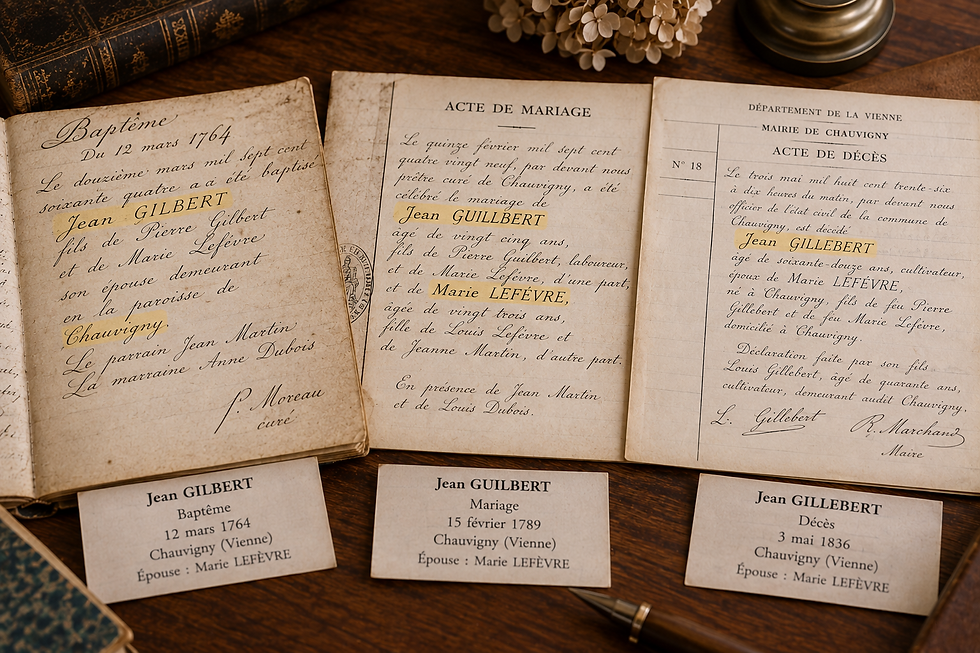 Baptême
Du 12 mars 1764
Le douzième mars mil sept cent
soixante quatre a a été baptisé
Jean GILBERT
fils de Pierre Gilbert
et de Marie Lefévre
son épouse demeurant
en la paroisse de
Chauvigny.
Le parrain Jean Martin
La marraine Anne Dubois
P. Moreau
curé
ACTE DE MARIAGE
Le quinze février mil sept cent
quatre vingt neuf, par devant nous
prêtre curé de Chauvigny, a été
célébré le mariage de
Jean GUILLBERT
âgé de vingt cinq ans,
fils de Pierre Guilbert, laboureur,
et de Marie Lefévre, d'une part,
et de Marie LEFÉVRE,
âgée de vingt trois ans,
fille de Louis Lefévre et
de Jeanne Martin, d'autre part.
En présence de Jean Martin
et de Louis Dubois.
DÉPARTEMENT DE LA VIENNE
MAIRIE DE CHAUVIGNY
ACTE DE DÉCÈS
N° 18
Le trois mai mil huit cent trente-six
à dix heures du matin, par devant nous
officier de l'état civil de la commune de
Chauvigny, est decédé
Jean GILLEBERT
âgé de soixante-douze ans, cultivateur,
époux de Marie LEFÈVRE,
né à Chauvigny, fils de feu Pierre
Gillebert et de feu Marie Lefévre,
domicilié à Chauvigny.
Déclaration faite par son fils
Louis Gillebert, âgé de quarante ans,
cultivateur, demeurant audit Chauvigny.
L. Gillebert
R. Marchand
Maire
Jean GILBERT
Baptême
12 mars 1764
Chauvigny (Vienne)
Épouse : Marie LEFÈVRE
Jean GUILBERT
Mariage
15 février 1789
Chauvigny (Vienne)
Épouse : Marie LEFÈVRE
Jean GILLEBERT
Décès
3 mai 1836
Chauvigny (Vienne)
Épouse : Marie LEFÈVRE